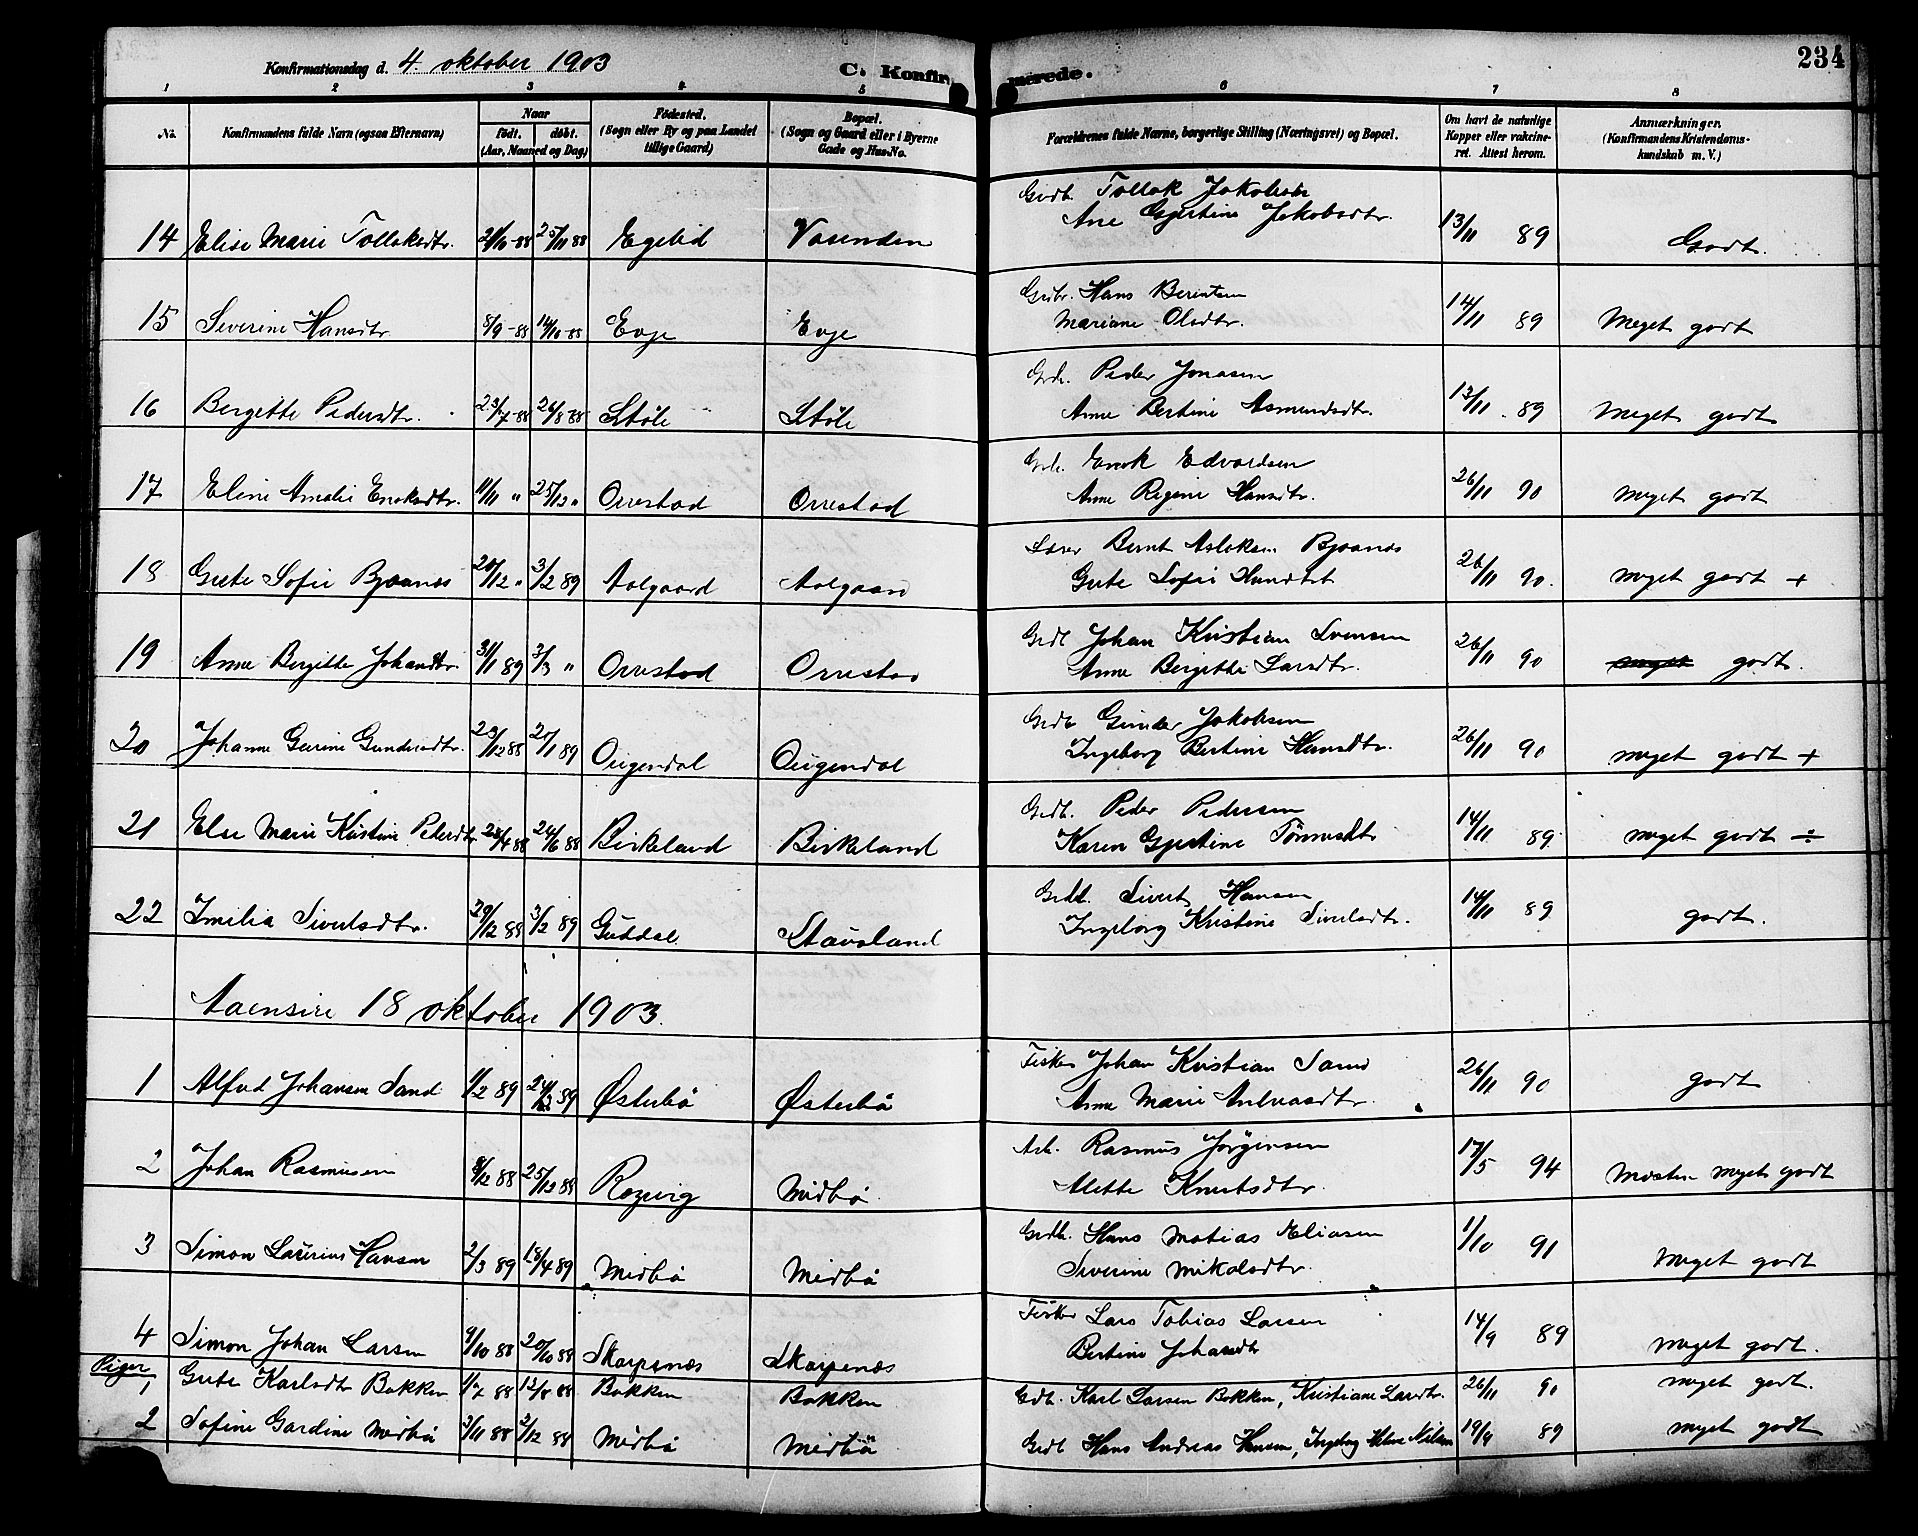 Konfirmationsdag d. 4. oktober 1903 C. Konfirmerede. 234
1 2 3 4 5 6 7 8
No. Konfirmandens fulde Navn (ogsaa Efternavn) Naar født. døbt. (Aar, Maaned og Dag) Fødested. (Sogn eller By og paa Landet tillige Gaard) Bopæl. (Sogn og Gaard eller i Byerne Gade og Hus-No. Forældrenes fulde Navne, borgerlige Stilling (Næringsvei) og Bopæl. Om havt de naturlige Kopper eller vakcineret. Attest herom. Anmærkninger. (Konfirmandens Kristendomskundskab m. V.)
Grdb. Tollak Jakobsen
14 Elise Marie Tollaksdtr. 25/11 88 Egelid Vasenden Ane Gjertine Jakobsdtr. 13/11 89 Godt.
Grdbr. Hans Berentsen
15 Severine Hansdtr 8/9-88 14/10-88 Evje Evje Mariane Olsdtr. 14/11 89 Meget godt
Grdb. Peder Jonasen
16 Bergitte Pedersdtr. 23/7-88 26/8-88 Støle Støle Anne Bertine Asmundsdtr. 13/11 89 Meget godt
Grdb. Enok Edvardsen
17 Eline Amalie Enoksdtr. 11/11 " 25/12 " Orrestad Orrestad Anne Regine Hansdtr. 26/11 90 meget godt
Lærer Bernt Aslaksen Bjaanes
18 Grete Sofie Bjaanes 20/12 " 3/2 89 Aalgaard Aalgaard Grete Sofie 26/11 90. meget godt +
Grdb Johan Kristian Svensen
19 Anne Bergitte Johansdtr. 31/1 89 3/3 " Orrestad Orrestad Anne Bergitte Larsdtr. 26/11 90 meget godt.
Grdb Gunder Jakobsen
20 Johanne Geirine Gundersdtr. 23/12 88 20/1 89 Ougendal Ougendal Ingeborg Bertine Hansdtr. 26/11 90 meget godt +
Grdb. Peder Pedersen
21 Else Marie Kristine Pedersdtr 28/4 88 24/6 88 Birkeland Birkeland Karen Gjertine Tönnesdtr 14/11 89 meget godt ÷
Grdb. Sivert Hansen
22 Emilia Sivertsdtr. 29/12 88 3/2 89 Guddal Stausland Ingeborg Kristine Sivertsdtr. 14/11 89 godt.
Aaensire 18 oktober 1903.
Fisker Johan Kristian Sand
1 Alfred Johansen Sand 1/2 89 Østerbö Østerbö Anne Marie 26/11 90 godt
Arb. Rasmus Jörgensen
2 Johan Rasmussen 8/12 88 25/12 88 Midbö Alette Knutsdtr. 17/5 94 Næsten meget godt
Grdb. Hans Matias Eliasen
3 Simon Laurius Hansen 2/3 89 18/4 89 Midbö Midbö Severine Mikalsdtr. 1/10 91 Meget godt
Fisker Lars Tobias Larsen
4 Simon Johan Larsen 9/10 88 20/10 88 Skarpenæs Skarpenæs Bertine Johansdtr 14/9 89 meget godt.
Piger
1 Grete Karlsdtr Bakken 1/7 88 12/8 88 Bakken Bakken Grdb. Karl Larsen Bakken, Kristiane Larsdtr. 26/11 90 meget godt.
2 Sofine Gardine Midbö 3/11 88 2/12 88 Midbö Midbö Grdb Hans Andreas Hansen, Ingeborg 19/9 89 meget godt